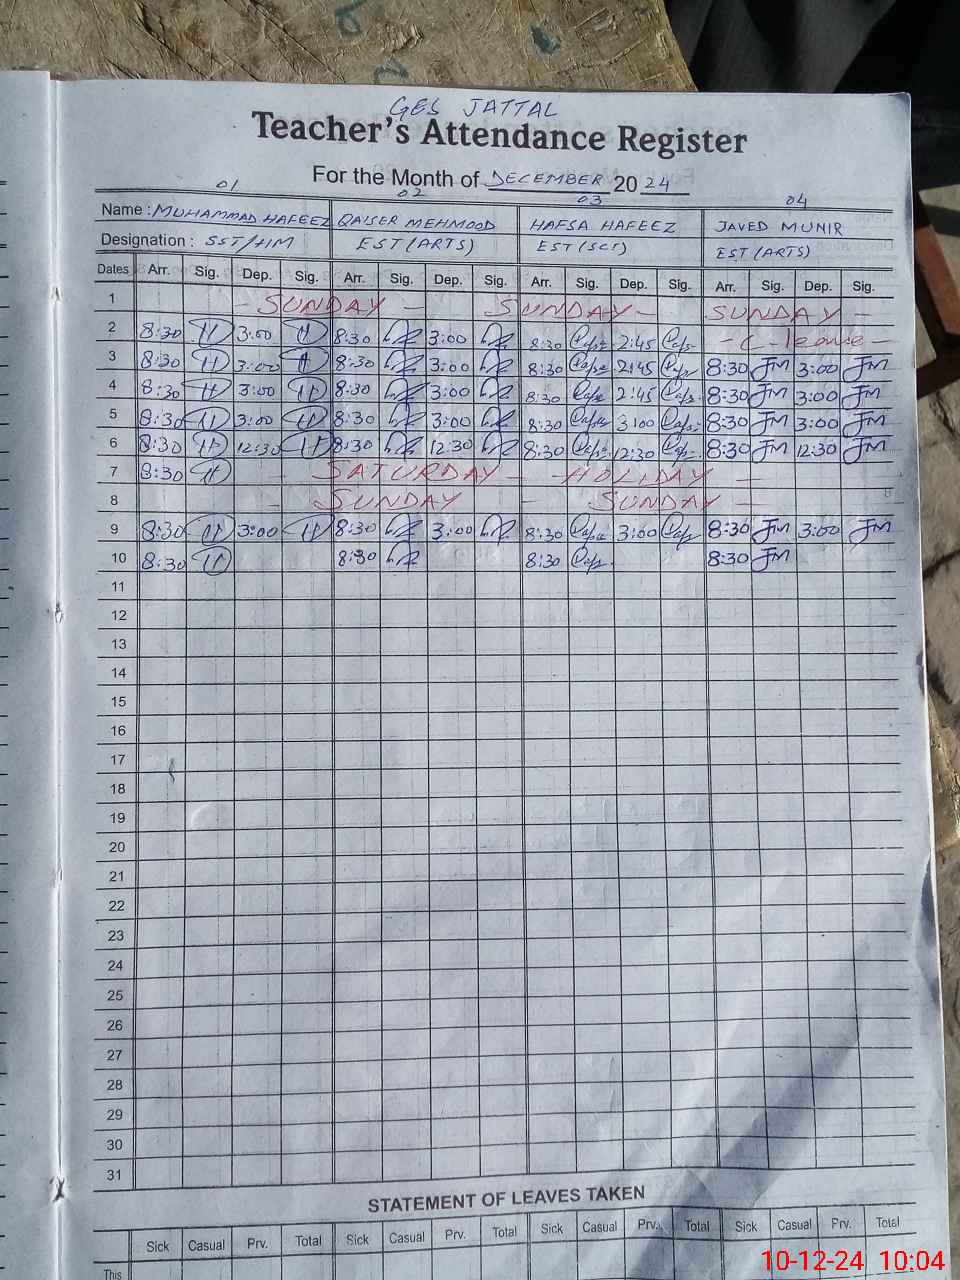 GES JATTAL
Teacher's Attendance Register
For the Month of DECEMBER 2024
01 02 03 04
Name : MUHAMMAD HAFEEZ QAISER MEHMOOD HAFSA HAFEEZ JAVED MUNIR
Designation : SST/HM EST(ARTS) EST(SCI) EST(ARTS)
Dates Arr. Sig. Dep. Sig. Arr. Sig. Dep. Sig. Arr. Sig. Dep. Sig. Arr. Sig. Dep. Sig.
1 - SUNDAY - SUNDAY - SUNDAY -
2 8:30 H 3:00 H 8:30 3:00 8:30 2:45 - C - leave -
3 8:30 H 3:00 H 8:30 3:00 8:30 2:45 8:30 JM 3:00 JM
4 8:30 H 3:00 H 8:30 3:00 8:30 2:45 8:30 JM 3:00 JM
5 8:30 H 3:00 H 8:30 3:00 8:30 3:00 8:30 JM 3:00 JM
6 8:30 H 12:30 H 8:30 12:30 8:30 12:30 8:30 JM 12:30 JM
7 8:30 H - SATURDAY - HOLIDAY -
8 - SUNDAY - SUNDAY -
9 8:30 H 3:00 H 8:30 3:00 8:30 3:00 8:30 JM 3:00 JM
10 8:30 H 8:30 8:30 8:30 JM
11
12
13
14
15
16
17
18
19
20
21
22
23
24
25
26
27
28
29
30
31
STATEMENT OF LEAVES TAKEN
Sick Casual Prv. Total Sick Casual Prv. Total Sick Casual Prv. Total Sick Casual Prv. Total
This
10-12-24 10:04